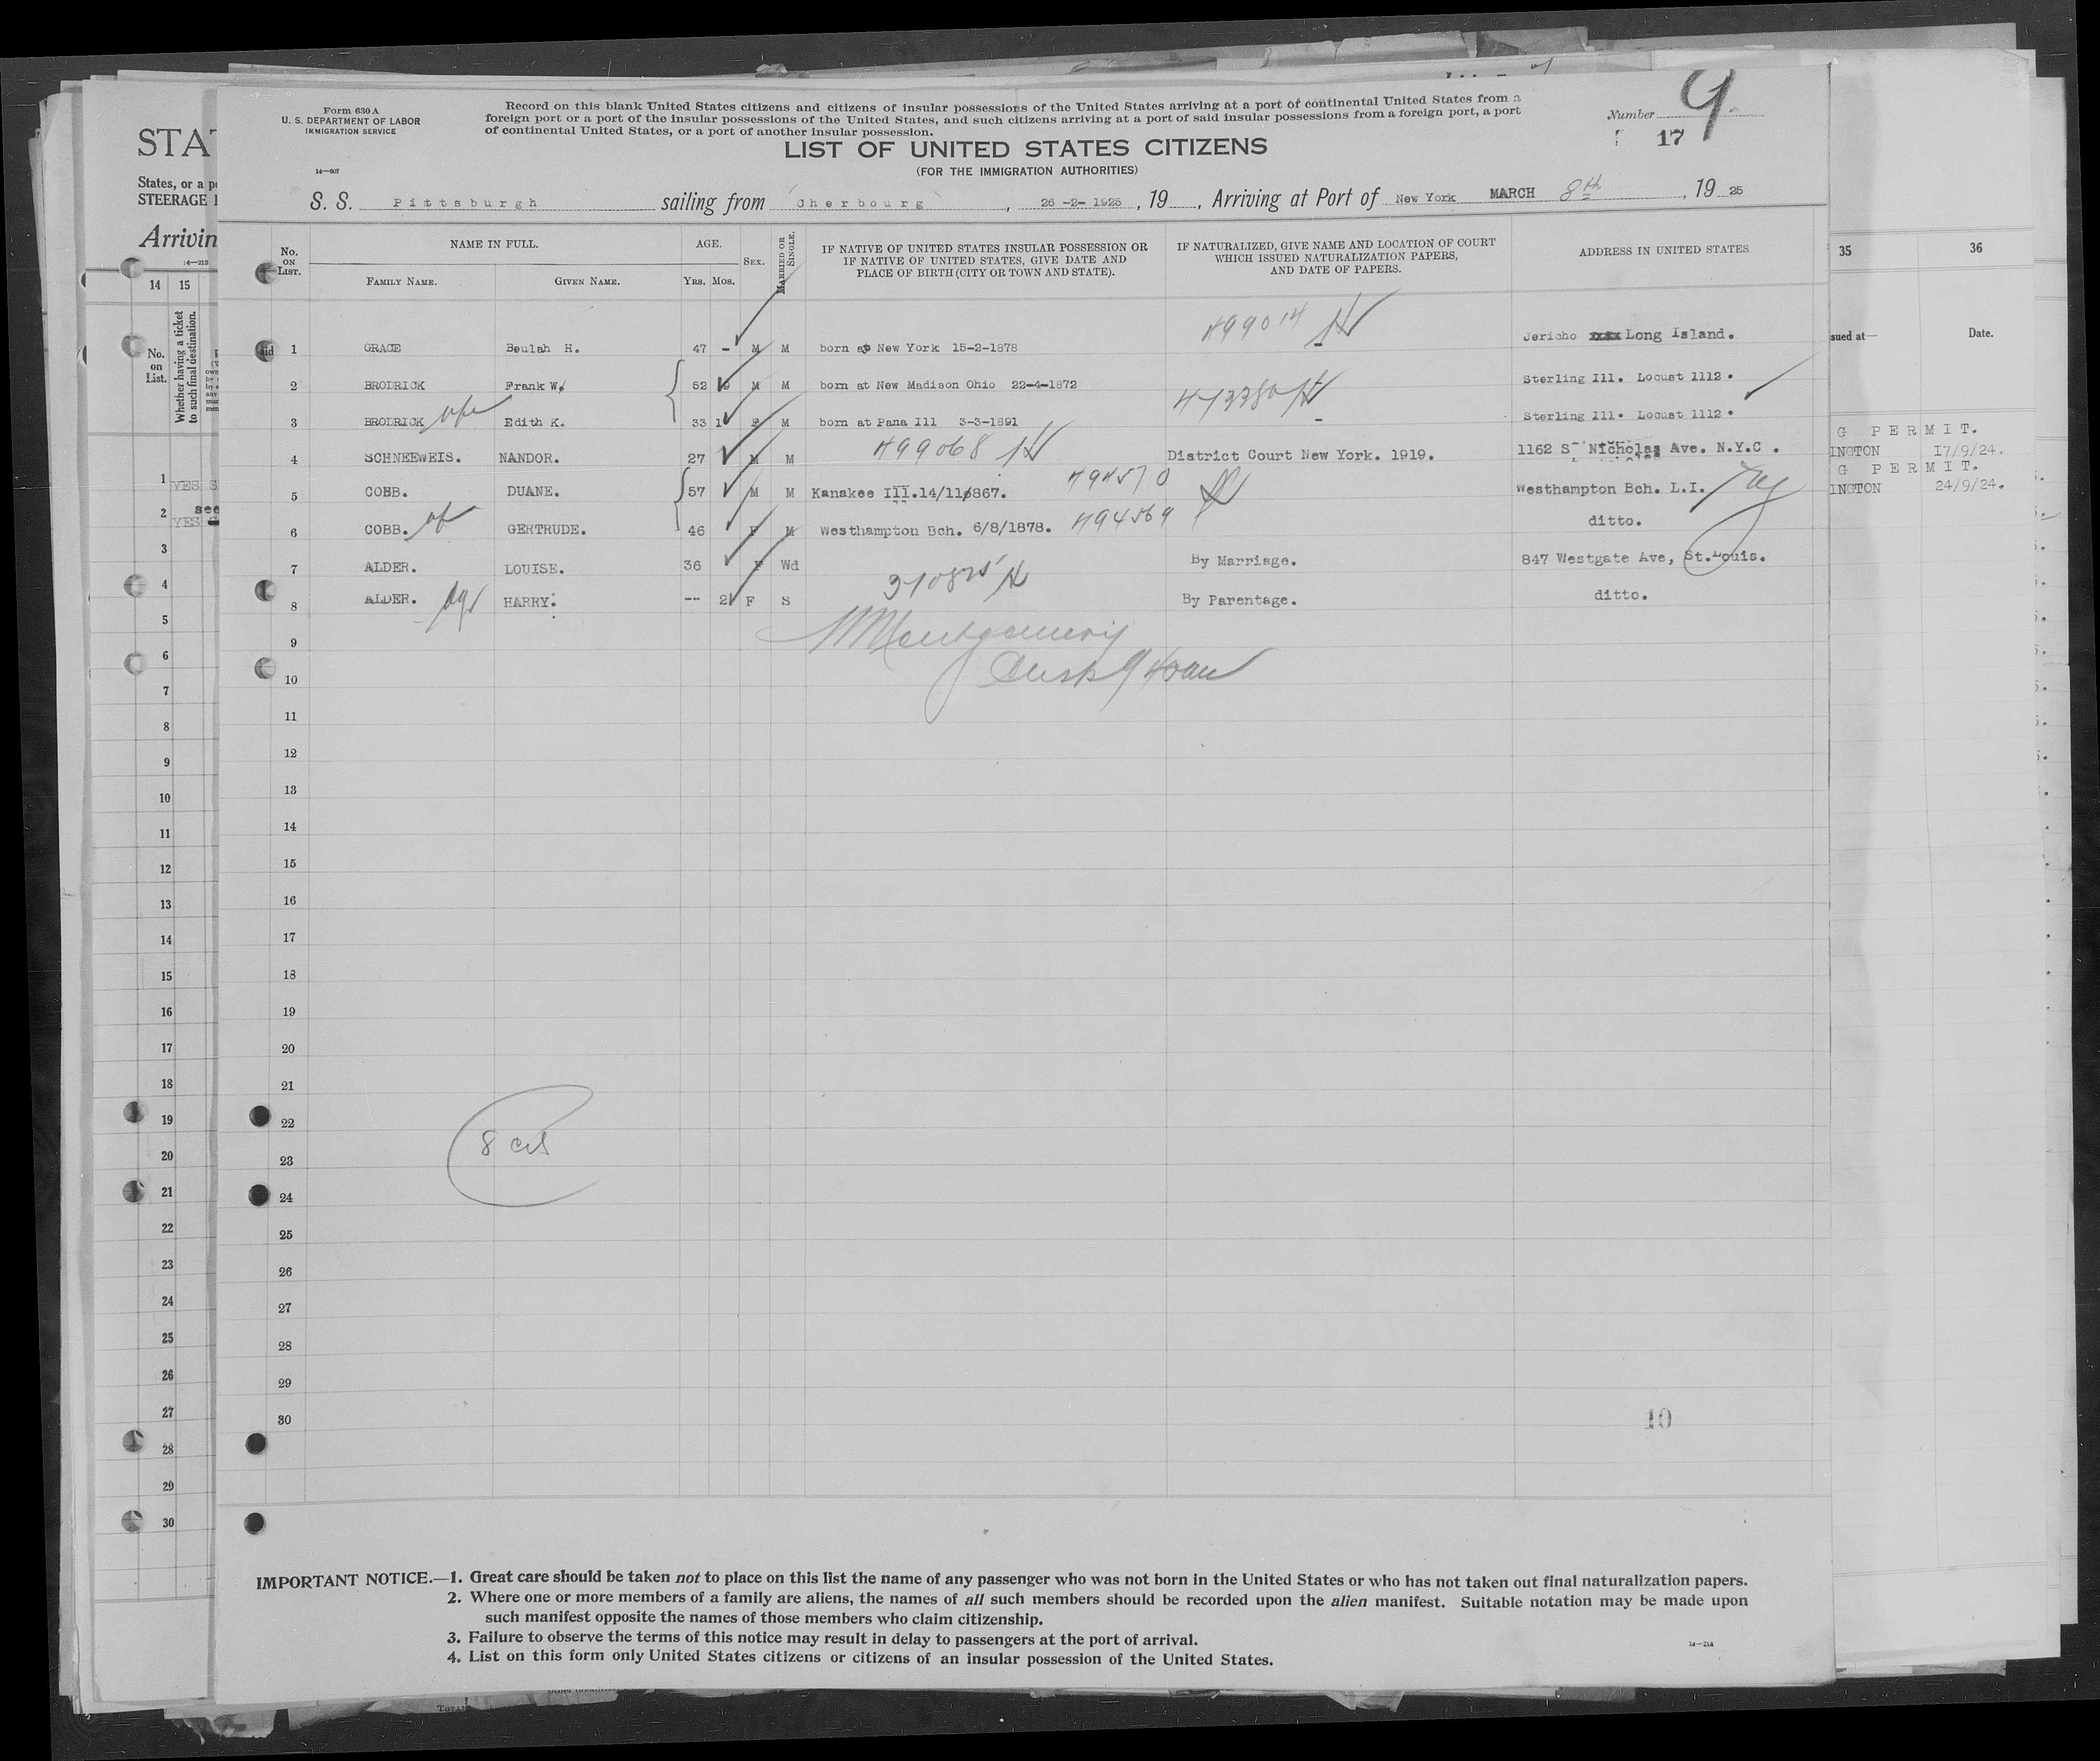 Form 630 A
U. S. DEPARTMENT OF LABOR
IMMIGRATION SERVICE
14—607
Record on this blank United States citizens and citizens of insular possessions of the United States arriving at a port of continental United States from a
foreign port or a port of the insular possessions of the United States, and such citizens arriving at a port of said insular possessions from a foreign port, a port
of continental United States, or a port of another insular possession.
Number 9
17
LIST OF UNITED STATES CITIZENS
(FOR THE IMMIGRATION AUTHORITIES)
S. S. Pittsburgh sailing from Cherbourg, 26 -2- 1925, 19 , Arriving at Port of New York MARCH 8th, 19 25
No. ON LIST.
NAME IN FULL.
FAMILY NAME. GIVEN NAME.
AGE.
YRS. MOS.
SEX.
MARRIED OR SINGLE.
IF NATIVE OF UNITED STATES INSULAR POSSESSION OR
IF NATIVE OF UNITED STATES, GIVE DATE AND
PLACE OF BIRTH (CITY OR TOWN AND STATE).
IF NATURALIZED, GIVE NAME AND LOCATION OF COURT
WHICH ISSUED NATURALIZATION PAPERS,
AND DATE OF PAPERS.
ADDRESS IN UNITED STATES
499014
1 GRACE Beulah H. 47 - M M born at New York 15-2-1878 - Jericho Long Island.
2 BRODRICK Frank W. 52 9 M M born at New Madison Ohio 22-4-1872 Sterling Ill. Locust 1112.
3 BRODRICK Edith K. 33 1 F M born at Pana Ill 3-3-1891 - Sterling Ill. Locust 1112.
499068
4 SCHNEEWEIS. NANDOR. 27 M M District Court New York. 1919. 1162 St Nicholas Ave. N.Y.C.
494570
5 COBB. DUANE. 57 M M Kanakee Ill.14/11/867. Westhampton Bch. L.I.
494569
6 COBB. GERTRUDE. 46 F M Westhampton Bch. 6/8/1878. ditto.
7 ALDER. LOUISE. 36 F Wd By Marriage. 847 Westgate Ave, St.Louis.
8 ALDER. HARRY. -- 2 F S By Parentage. ditto.
Montgomery
9
10
11
12
13
14
15
16
17
18
19
20
21
22
8 cit
23
24
25
26
27
28
29
30
10
IMPORTANT NOTICE.—1. Great care should be taken not to place on this list the name of any passenger who was not born in the United States or who has not taken out final naturalization papers.
2. Where one or more members of a family are aliens, the names of all such members should be recorded upon the alien manifest. Suitable notation may be made upon
such manifest opposite the names of those members who claim citizenship.
3. Failure to observe the terms of this notice may result in delay to passengers at the port of arrival.
4. List on this form only United States citizens or citizens of an insular possession of the United States.
14—214
STA
States, or a p
STEERAGE
Arrivin
14—213
14 15
No. on List.
Whether having a ticket to such final destination.
1 YES
see
2 YES
3
4
5
6
7
8
9
10
11
12
13
14
15
16
17
18
19
20
21
22
23
24
25
26
27
28
29
30
35 36
sued at— Date.
G PERMIT.
INGTON 17/9/24.
G PERMIT.
INGTON 24/9/24.